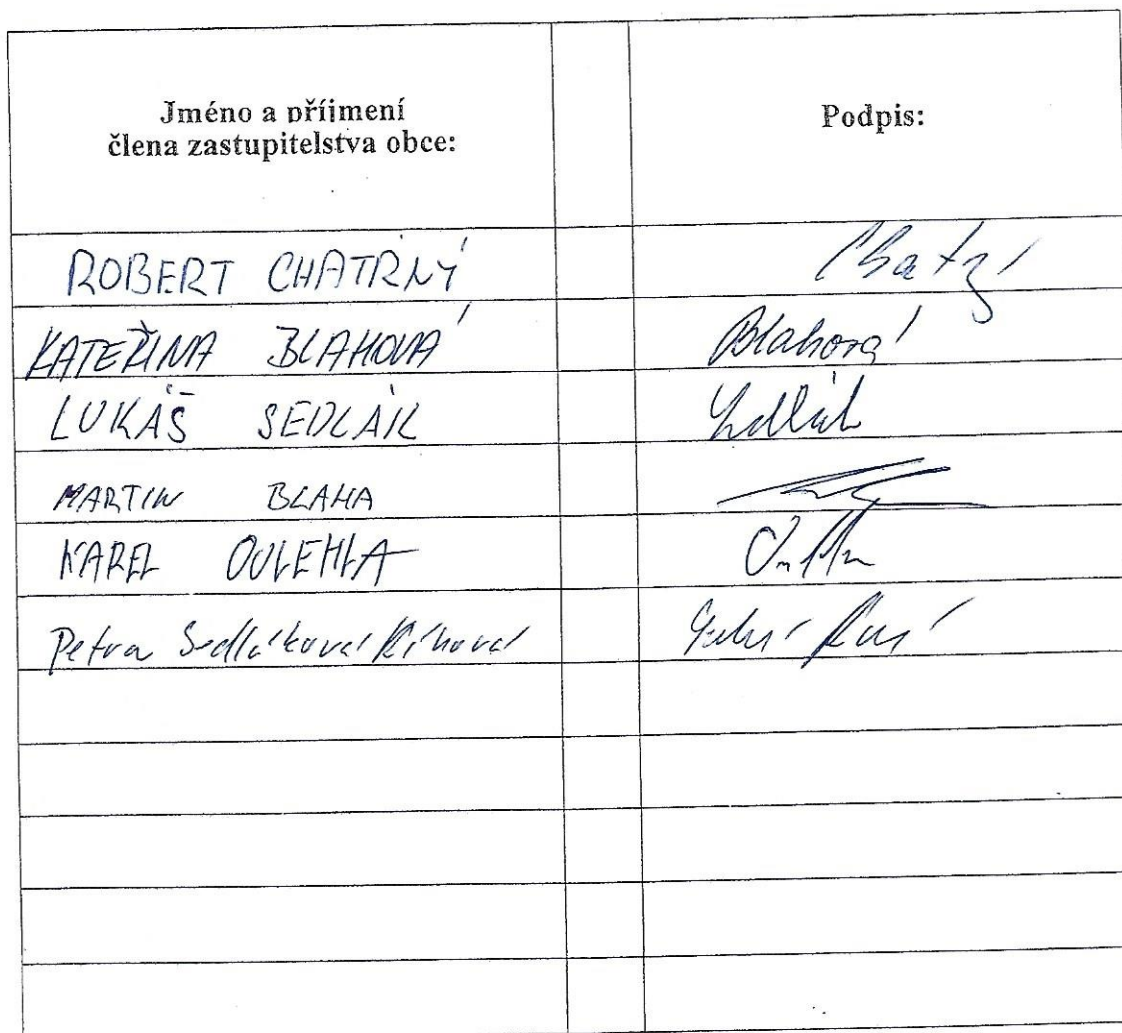 Jméno a příjmení
člena zastupitelstva obce:
Podpis:
ROBERT CHATRNÝ
KATEŘINA BLAHOVÁ
Blahová
LUKÁŠ SEDLÁK
Sedlák
MARTIN BLAHA
KAREL OULEHLA
Petra Sedláková